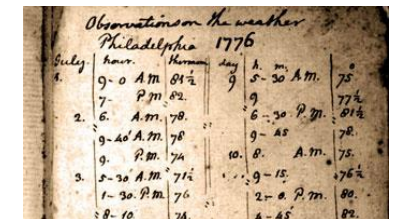 Observations on the weather
Philadelphia 1776
July. hour. thermom day h. m. °
1. 9-0 A.M 81½ 9 5-30 A.M. 75
7- P.M 82. 9 77½
2. 6. A.M. 78. 6-30 P.M. 81½
9-40' A.M. 78 9-45 78.
9. P.M. 74 10. 8. A.M. 75.
3. 5-30 A.M. 71½ 9-15. 76½
1-30. P.M. 76 2-0. P.M. 80.
8-10. 74. 4-45 82.